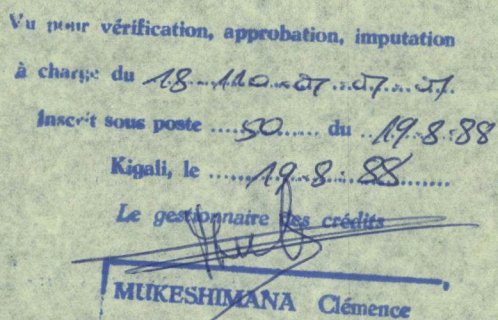 Vu pour vérification, approbation, imputation
à charge du 18.110.07.07.07.
Inscrit sous poste ....50...... du ..19-8-88
Kigali, le .......19.8.88........
Le gestionnaire des crédits
MUKESHIMANA Clémence